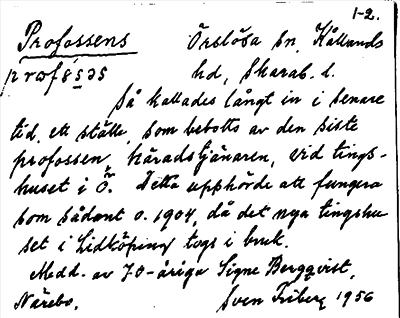 1-2.
Profossens Örslösa sn, Kållands
hd, Skarab. l.
Så kallades långt in i senare
tid, ett ställe, som bebotts av den siste
profossen, häradstjänaren, vid tings-
huset i Ö. Detta upphörde att fungera
som sådant o. 1904, då det nya tingshu
set i Lidköping togs i bruk.
Medd. av 70-åriga Signe Bergqvist,
Närebo. Sven Friberg 1956